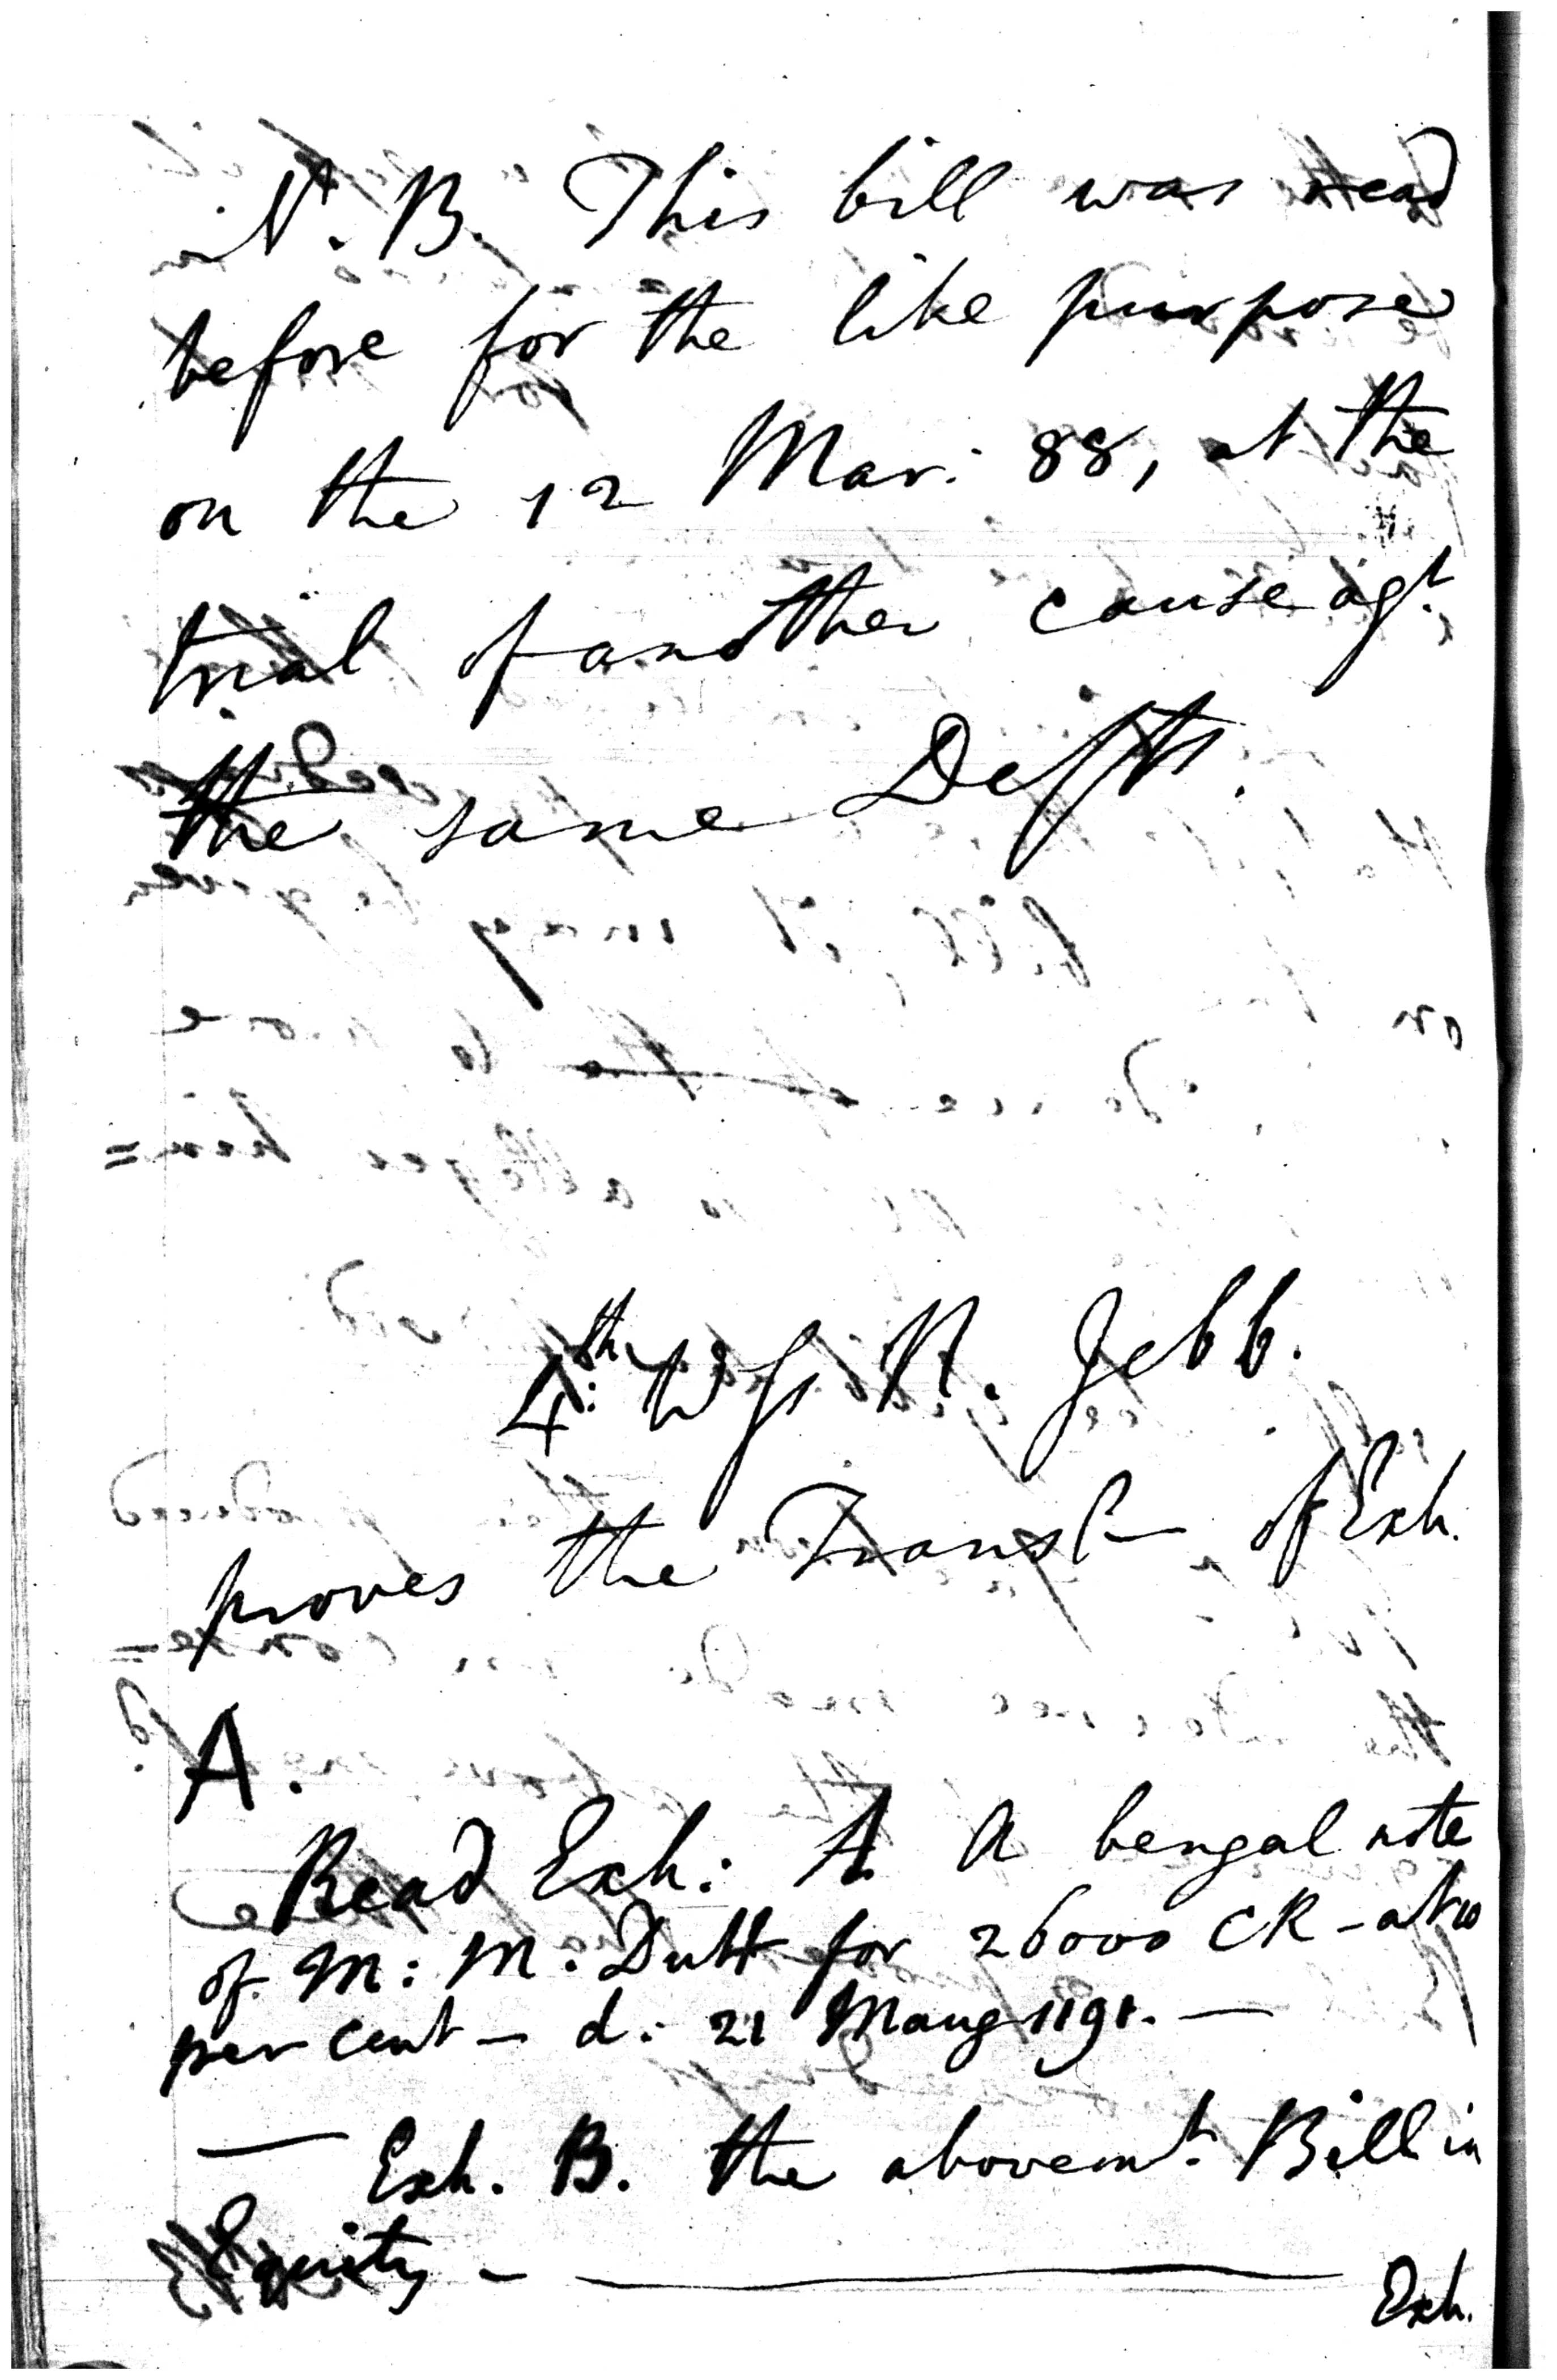 N. B. This bill was read
before for the like purpose
on the 12 Mar: 88, at the
trial of another cause agt.
the same Defts.
4th: Ws R. Jebb.
proves the Transln of Exh.
A.
Read Exh: A. A bengal note
of M: M. Dutt for 26000 CR - at 10
per cent - d: 21 Maug 1191. —
— Exh. B. the abovemt. Bill in
Equity - —
Exh.